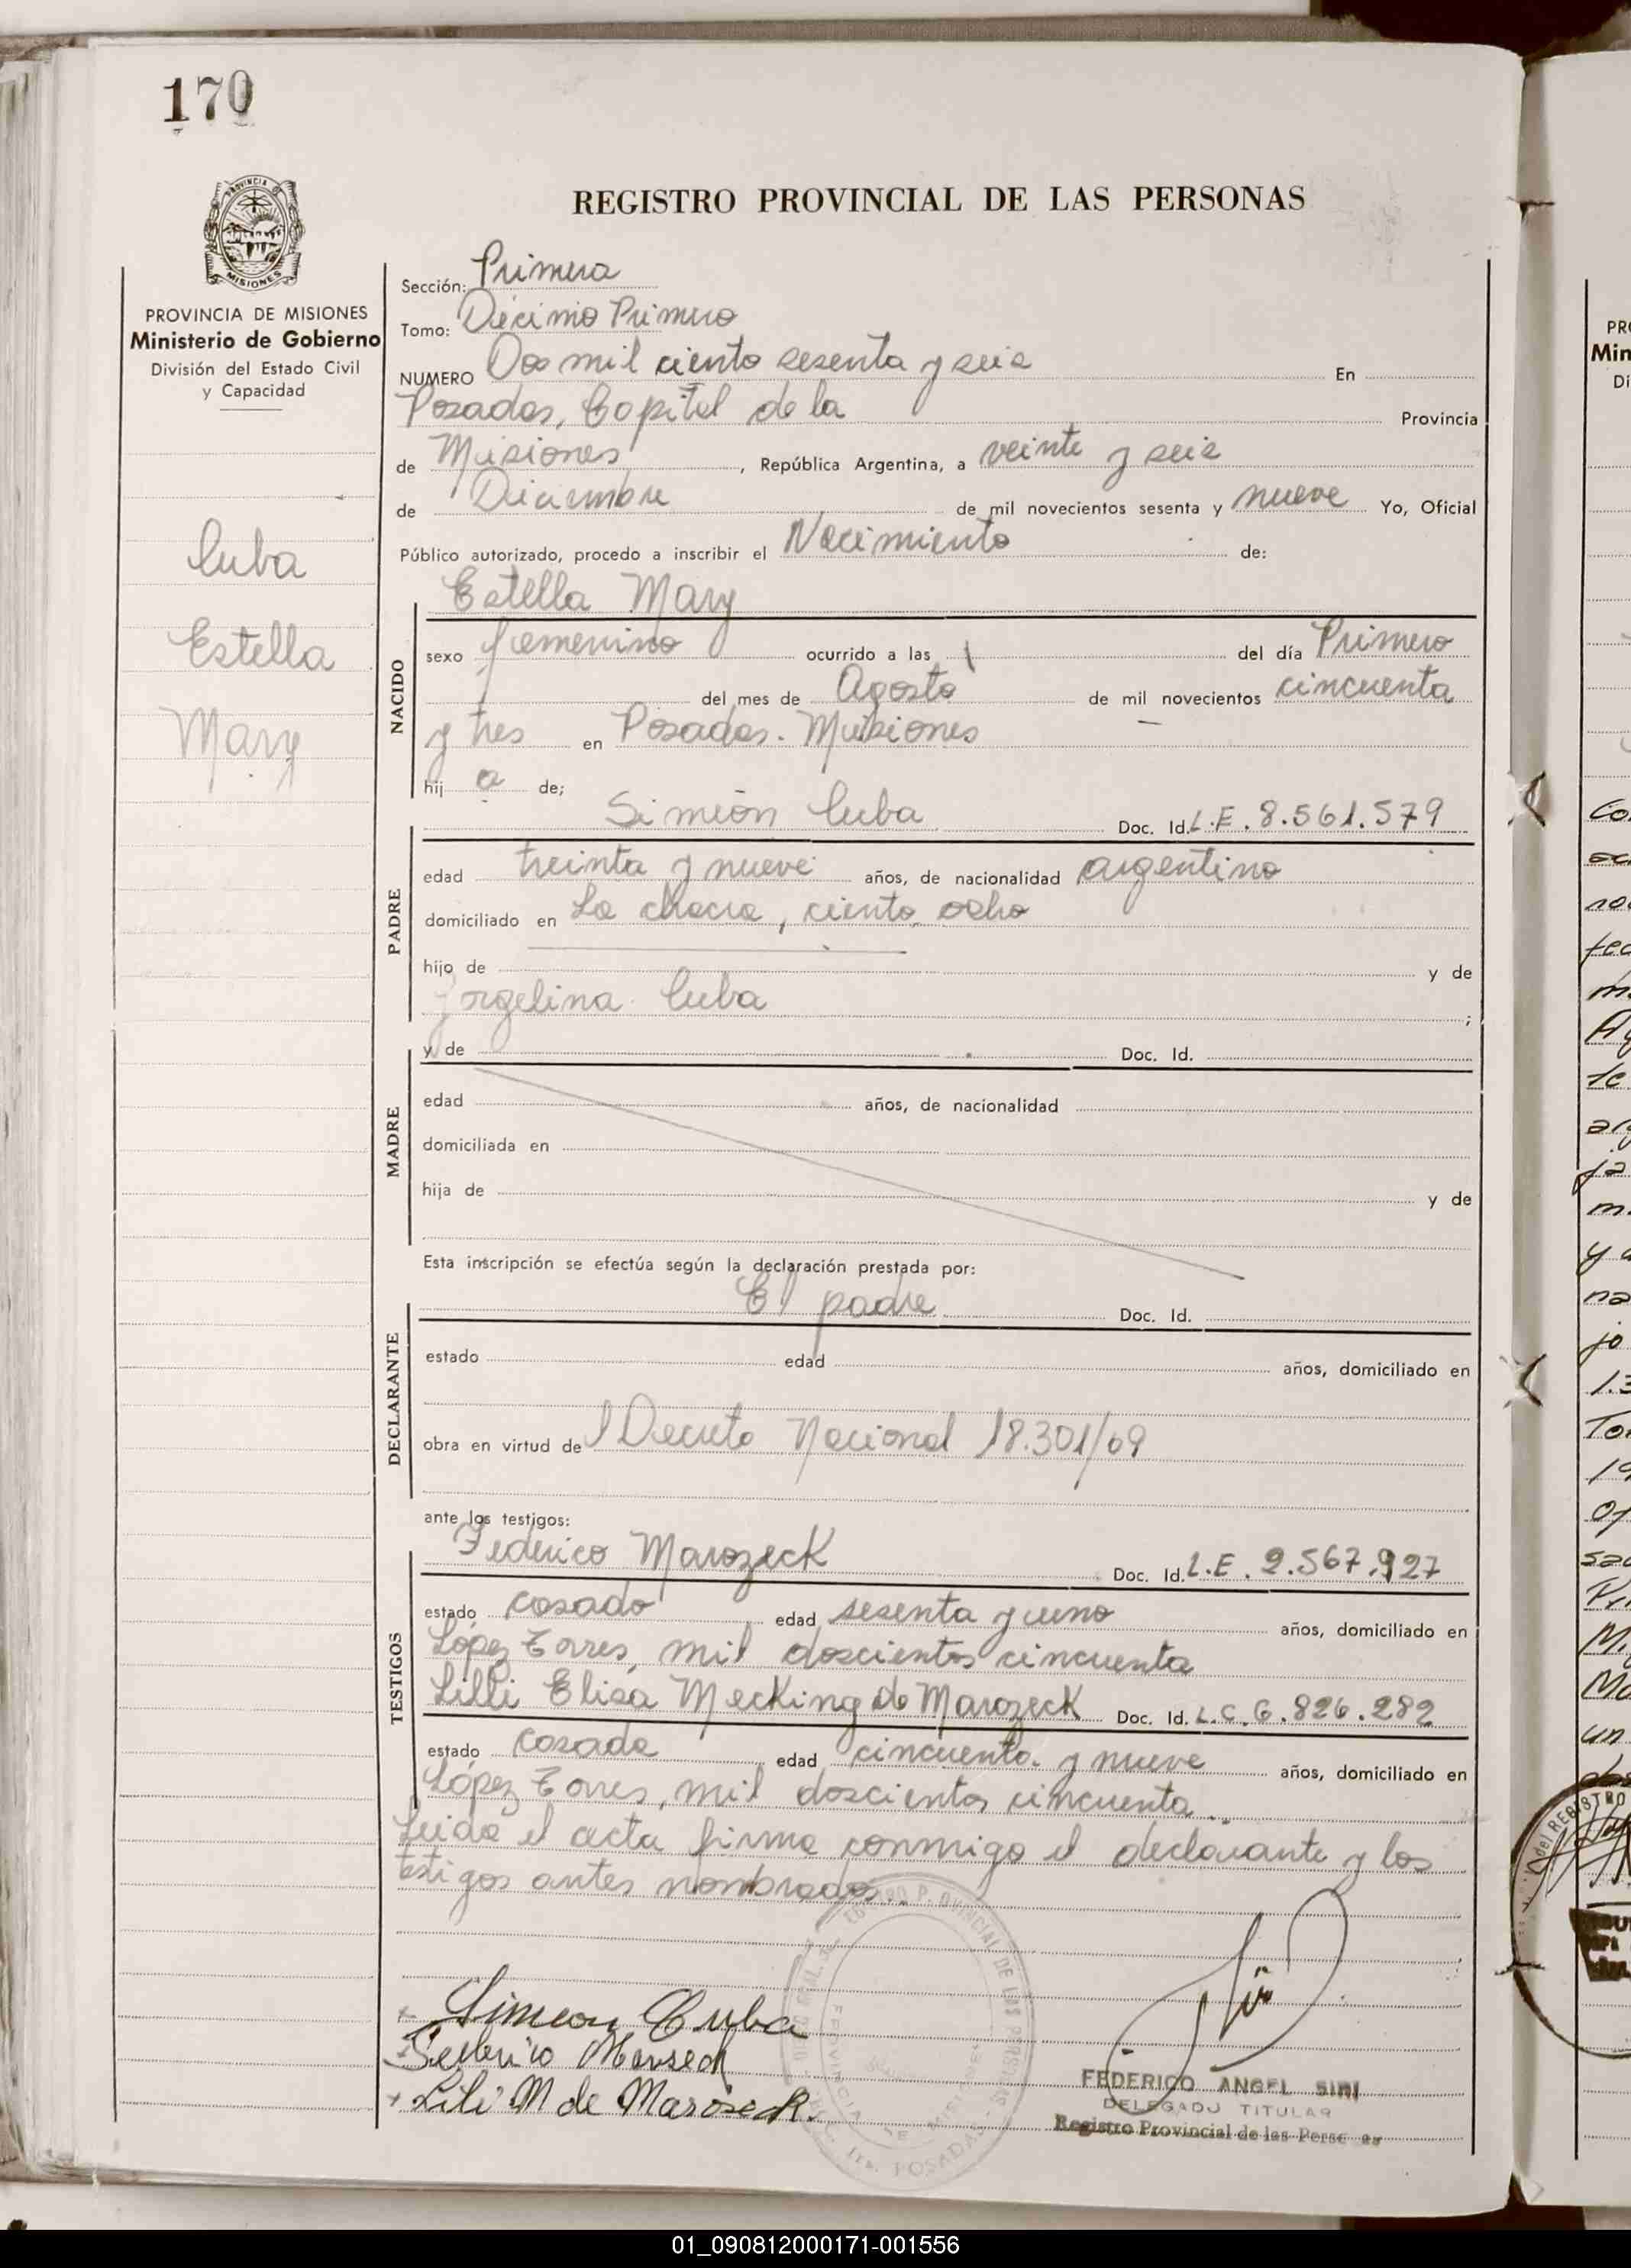 170
PROVINCIA
MISIONES
PROVINCIA DE MISIONES
Ministerio de Gobierno
División del Estado Civil
y Capacidad
Cuba
Estella
Mary
REGISTRO PROVINCIAL DE LAS PERSONAS
Sección: Primera
Tomo: Décimo Primero
NUMERO Dos mil ciento sesenta y seis En
Posadas, Capital de la Provincia
de Misiones, República Argentina, a veinte y seis
de Diciembre de mil novecientos sesenta y nueve Yo, Oficial
Público autorizado, procedo a inscribir el Nacimiento de:
Estella Mary
NACIDO
sexo femenino ocurrido a las del día Primero
del mes de Agosto de mil novecientos cincuenta
y tres en Posadas. Misiones
hij a de;
Simeón Cuba Doc. Id. L.E. 8.561.579
PADRE
edad treinta y nueve años, de nacionalidad argentino
domiciliado en La chacra, ciento ocho
hijo de y de
Jorgelina Cuba ;
MADRE
y de Doc. Id.
edad años, de nacionalidad
domiciliada en
hija de y de
Esta inscripción se efectúa según la declaración prestada por:
El padre Doc. Id.
DECLARANTE
estado edad años, domiciliado en
obra en virtud de Decreto Nacional 18.301/69
ante los testigos:
Federico Marozeck Doc. Id. L.E. 2.567.927
TESTIGOS
estado casado edad sesenta y uno años, domiciliado en
López Torres, mil doscientos cincuenta
Lilli Elisa Mecking de Marozeck Doc. Id. L.C. 6.826.282
estado casada edad cincuenta y nueve años, domiciliado en
López Torres, mil doscientos cincuenta..
Leida el acta firma conmigo el declarante y los
testigos antes nombrados..
Simeon Cuba
Federico
Lili M de Maroseck.
FEDERICO ANGEL SIRI
DELEGADO TITULAR
Registro Provincial de las Personas
POSADAS
01_090812000171-001556